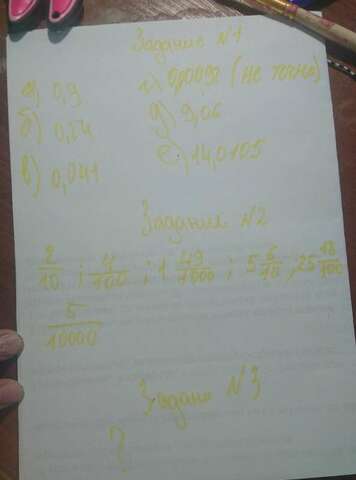 Задание №1
а) 0,9
б) 0,24
в) 0,041
г) 0,0092 (не точно)
д) 9,06
е) 14,0105
Задание №2
2/10 ; 4/100 ; 1 49/1000 ; 5 6/10 , 25 18/100
5/10000
Задание №3
?